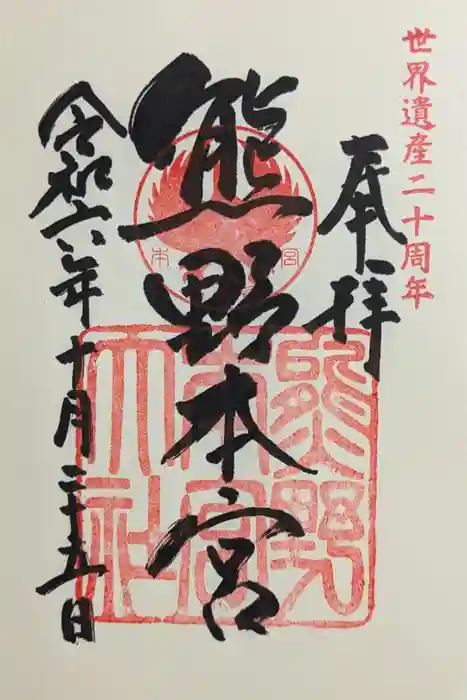 世界遺産二十周年
奉拝
熊野本宮
令和六年十月二十五日
熊野
本宮
大社
本宮